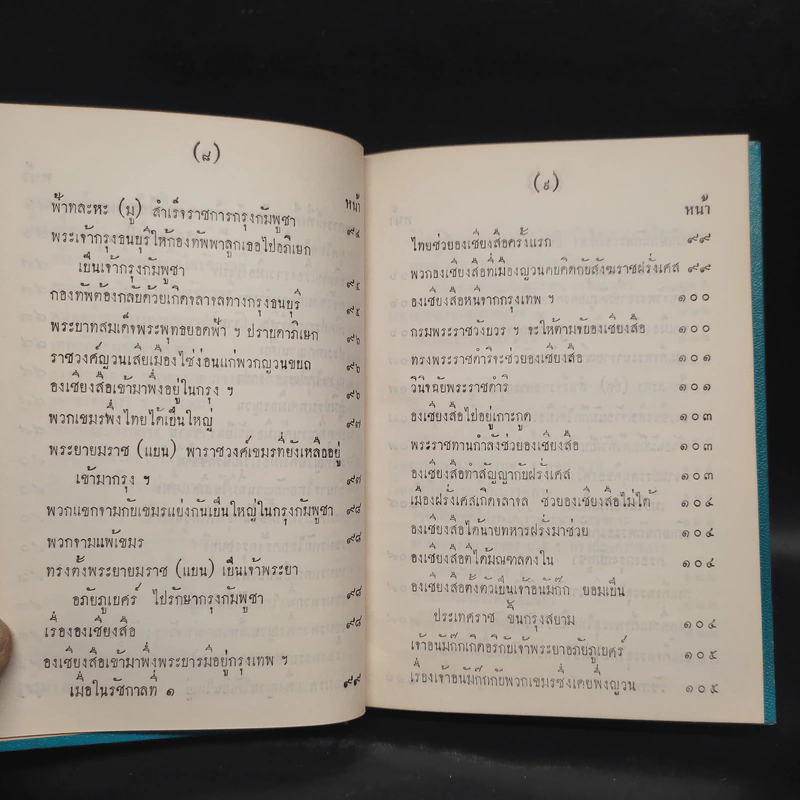 (๘)
หน้า
ฟ้าทละหะ (มู) สำเร็จราชการกรุงกัมพูชา ๙๔
พระเจ้ากรุงธนบุรีให้กองทัพพาลูกเธอไปอภิเษก
เป็นเจ้ากรุงกัมพูชา ๙๕
กองทัพต้องกลับด้วยเกิดจลาจลทางกรุงธนบุรี ๙๕
พระบาทสมเด็จพระพุทธยอดฟ้า ฯ ปราบดาภิเษก ๙๖
ราชวงศ์ญวนเสียเมืองไซ่ง่อนแก่พวกญวนขบถ ๙๖
องเชียงสือเข้ามาพึ่งอยู่ในกรุง ฯ ๙๖
พวกเขมรพึ่งไทยได้เป็นใหญ่ ๙๗
พระยายมราช (แบน) พาราชวงศ์เขมรที่ยังเหลืออยู่
เข้ามากรุง ฯ ๙๗
พวกแขกจามกับเขมรแย่งกันเป็นใหญ่ในกรุงกัมพูชา ๙๘
พวกจามแพ้เขมร ๙๘
ทรงตั้งพระยายมราช (แบน) เป็นเจ้าพระยา
อภัยภูเบศร์ ไปรักษากรุงกัมพูชา ๙๘
เรื่ององเชียงสือ ๙๘
องเชียงสือเข้ามาพึ่งพระบารมีอยู่กรุงเทพ ฯ
เมื่อในรัชกาลที่ ๑ ๙๙
(๙)
หน้า
ไทยช่วยองเชียงสือครั้งแรก ๙๙
พวกองเชียงสือที่เมืองญวนคบคิดกับสังฆราชฝรั่งเศส ๙๙
องเชียงสือหนีจากกรุงเทพ ฯ ๑๐๐
กรมพระราชวังบวร ฯ จะให้ตามจับองเชียงสือ ๑๐๐
ทรงพระราชดำริจะช่วยองเชียงสือ ๑๐๑
วินิจฉัยพระราชดำริ ๑๐๑
องเชียงสือไปอยู่เกาะกูด ๑๐๓
พระราชทานกำลังช่วยองเชียงสือ ๑๐๓
องเชียงสือทำสัญญากับฝรั่งเศส ๑๐๓
เมืองฝรั่งเศสเกิดจลาจล ช่วยองเชียงสือไม่ได้ ๑๐๔
องเชียงสือได้นายทหารฝรั่งมาช่วย ๑๐๔
องเชียงสือตีได้มณฑลดงใน ๑๐๔
องเชียงสือตั้งตัวเป็นเจ้าอนัมก๊ก ยอมเป็น
ประเทศราช ขึ้นกรุงสยาม ๑๐๔
เจ้าอนัมก๊กเกิดอริกับเจ้าพระยาอภัยภูเบศร์ ๑๐๕
เรื่องเจ้าอนัมก๊กกับพวกเขมรซึ่งเคยพึ่งญวน ๑๐๕